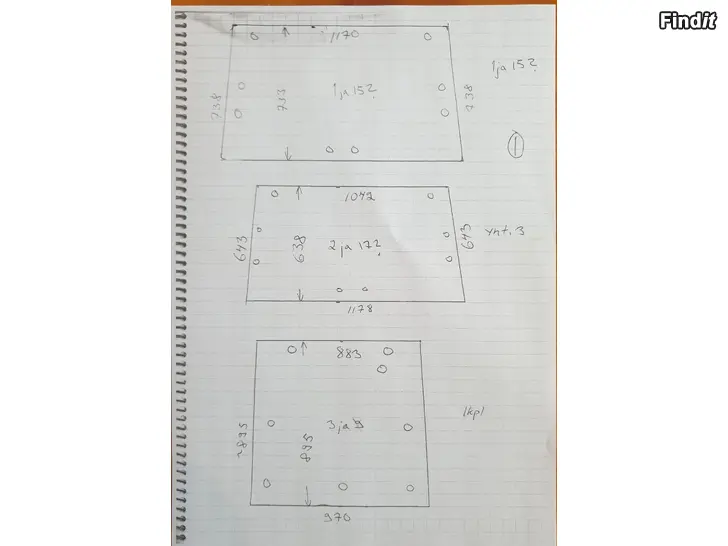 Findit
1170
1 ja 15?
738
713
1 ja 15?
738
1
1042
643
638
2 ja 17?
643
Yht. 3
1178
883
~895
895
3 ja 9
1kpl
970